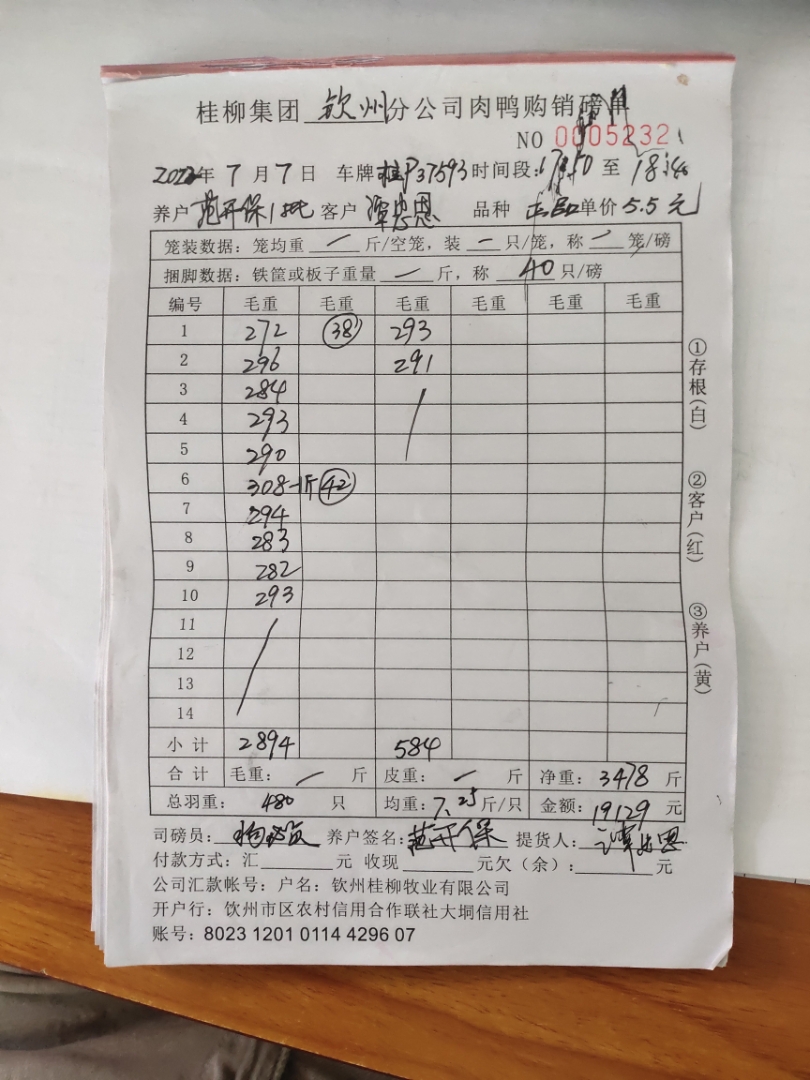 桂柳集团 钦州 分公司肉鸭购销磅单
NO 0005232
2022年 7 月 7 日 车牌 桂P37593 时间段: 17:50 至 18:40
养户 范开保1批 客户 覃忠恩 品种 正品 单价 5.5 元
笼装数据: 笼均重 / 斤/空笼, 装 一 只/笼, 称 / 笼/磅
捆脚数据: 铁筐或板子重量 一 斤, 称 40 只/磅
编号 毛重 毛重 毛重 毛重 毛重 毛重
1 272 38 293
2 296 291
3 284 /
4 293
5 290
6 308-1斤 42
7 294
8 283
9 282
10 293
11 /
12
13
14
小计 2894 584
合计 毛重: / 斤 皮重: 一 斤 净重: 3478 斤
总羽重: 480 只 均重: 7.25 斤/只 金额: 19129 元
司磅员: 养户签名: 范开保 提货人: 覃忠恩
付款方式: 汇 元 收现 元欠(余): 元
公司汇款帐号: 户名: 钦州桂柳牧业有限公司
开户行: 钦州市区农村信用合作联社大垌信用社
账号: 8023 1201 0114 4296 07
①存根(白)
②客户(红)
③养户(黄)